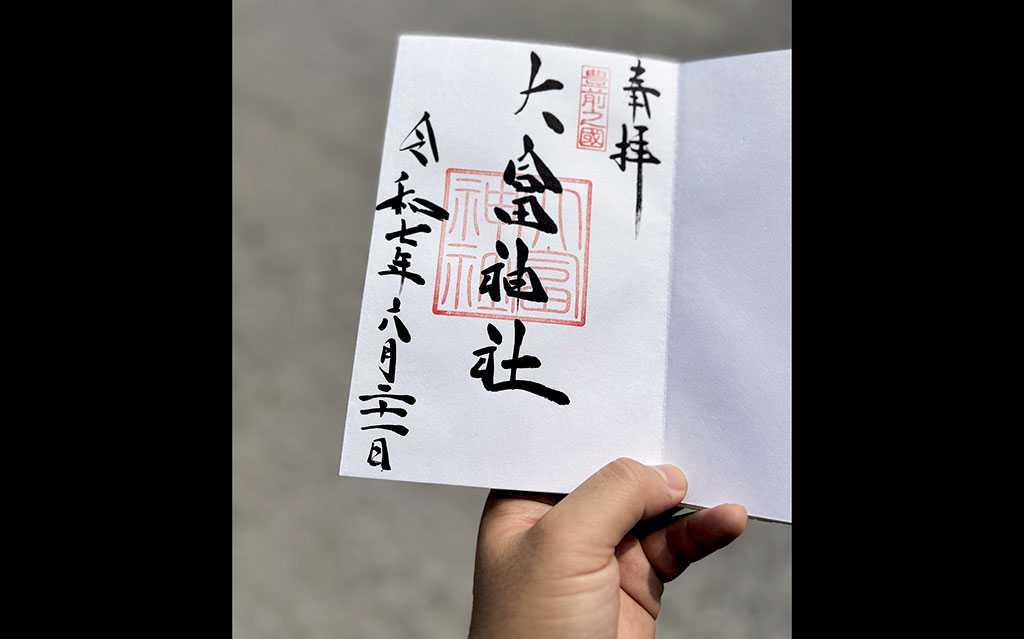 奉拝
豊前之國
大富神社
大富神社
令和七年六月二十一日